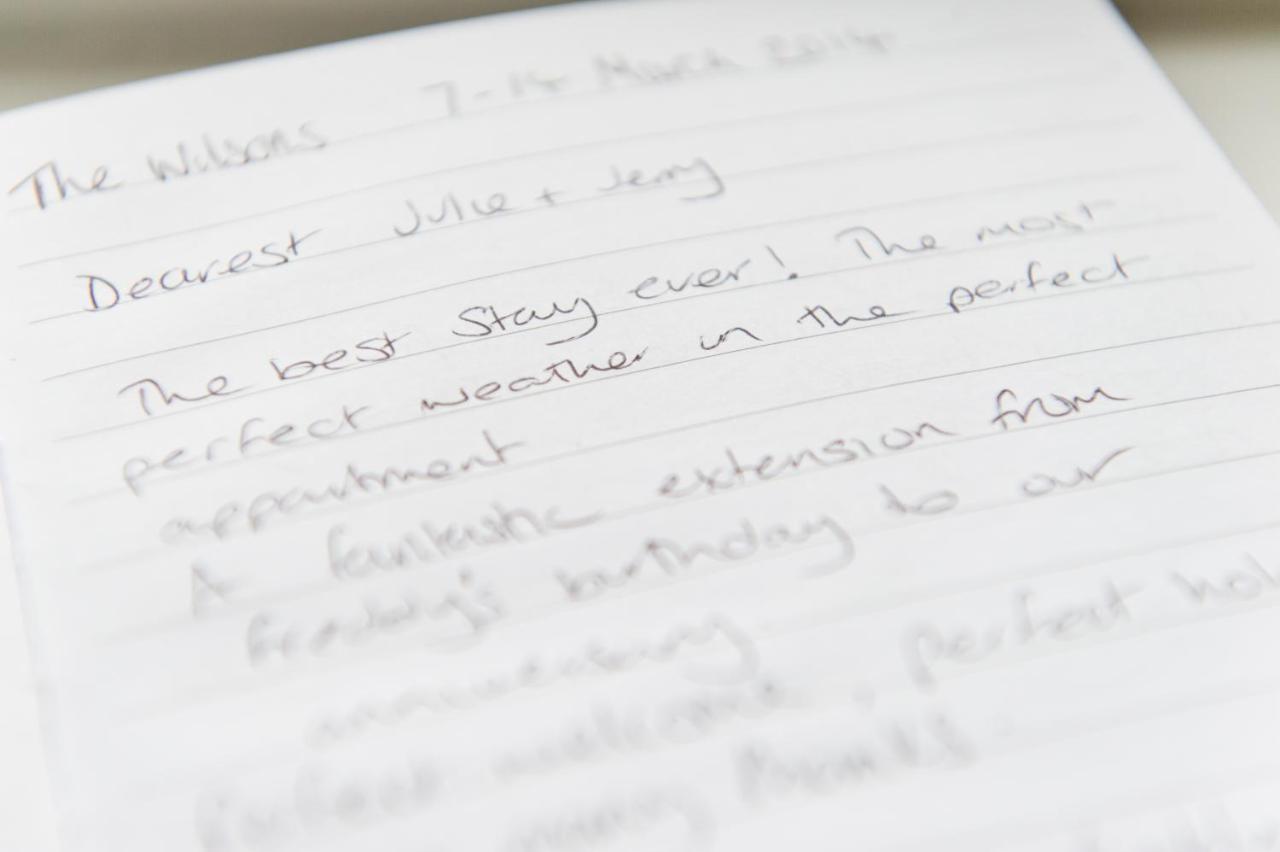 The Wilsons 7-14 March 2014
Dearest Julie + Jerry
The best stay ever! The most
perfect weather in the perfect
appartment
A fantastic extension from
freddy's birthday to our
anniversary
Perfect welcome, perfect
many thanks